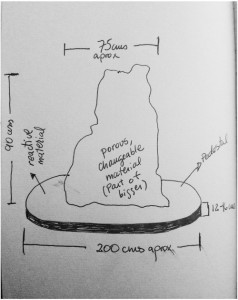 75cms
aprox
90 cms
reactive
material
porous,
changeable
material
(Part of
bigger)
Pedestal
200 cms aprox